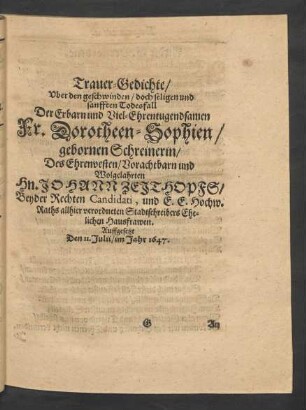 Trauer-Gedichte/
Vber den geschwinden/ doch seligen und
sanfften Todesfall
Der Erbarn und Viel-Ehrentugendsamen
Fr. Dorotheen-Sophien/
gebornen Schreinerin/
Des Ehrenvesten/ Vorachtbarn und
Wolgelahrten
Hn. JOHANN ZEITHOPFS/
Beyder Rechten Candidati, und E. E. Hochw.
Raths allhier verordneten Stadtschreibers Ehe-
lichen Hausfrawen.
Auffgesetzt
Den 11. Julii/ im Jahr 1647.
G
An